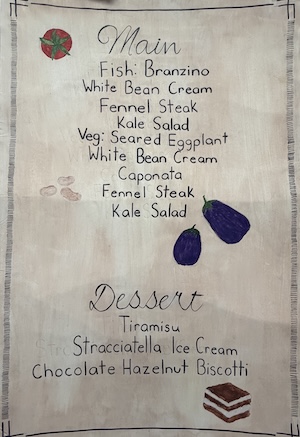 Main
Fish: Branzino
White Bean Cream
Fennel Steak
Kale Salad
Veg: Seared Eggplant
White Bean Cream
Caponata
Fennel Steak
Kale Salad
Dessert
Tiramisu
Stracciatella Ice Cream
Chocolate Hazelnut Biscotti